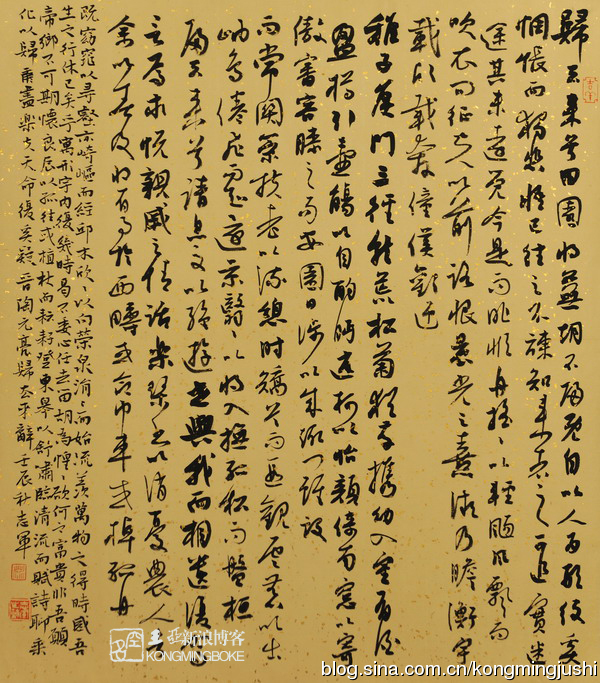 歸去来兮田園将蕪胡不歸既自以心為形役奚
惆悵而獨悲悟已往之不諫知来者之可追實迷
途其未遠覺今是而昨非舟摇々以輕颺風飄而
吹衣问征夫以前路恨晨光之熹微乃瞻衡宇
載欣載奔僮僕歡迎
稚子候門三徑就荒松菊猶存攜幼入室有酒
盈樽引壺觴以自酌眄庭柯以怡顏倚南窓以寄
傲審容膝之易安園日涉以成趣门雖設
而常関策扶老以流憩時矯首而遐觀雲無心以出
岫鳥倦飛而知還景翳々以将入撫孤松而盤桓
歸去来兮請息交以絶遊世與我而相遺復駕
言兮焉求悦親戚之情話樂琴書以消憂農人告
余以春及将有事於西疇或命巾車或棹孤舟
既窈窕以尋壑亦崎嶇而經邱木欣々以向榮泉涓々而始流羡萬物之得時感吾
生之行休已矣乎寓形宇内復幾時曷不委心任去留胡為惶々欲何之富貴非吾願
帝鄉不可期懷良辰以孤往或植杖而耘耔登東皋以舒嘯臨清流而賦詩聊乘
化以歸盡樂夫天命復奚疑晋陶元亮歸去来辭壬辰秋志軍
新浪博客
KONGMINGBOKE
blog.sina.com.cn/kongmingjushi